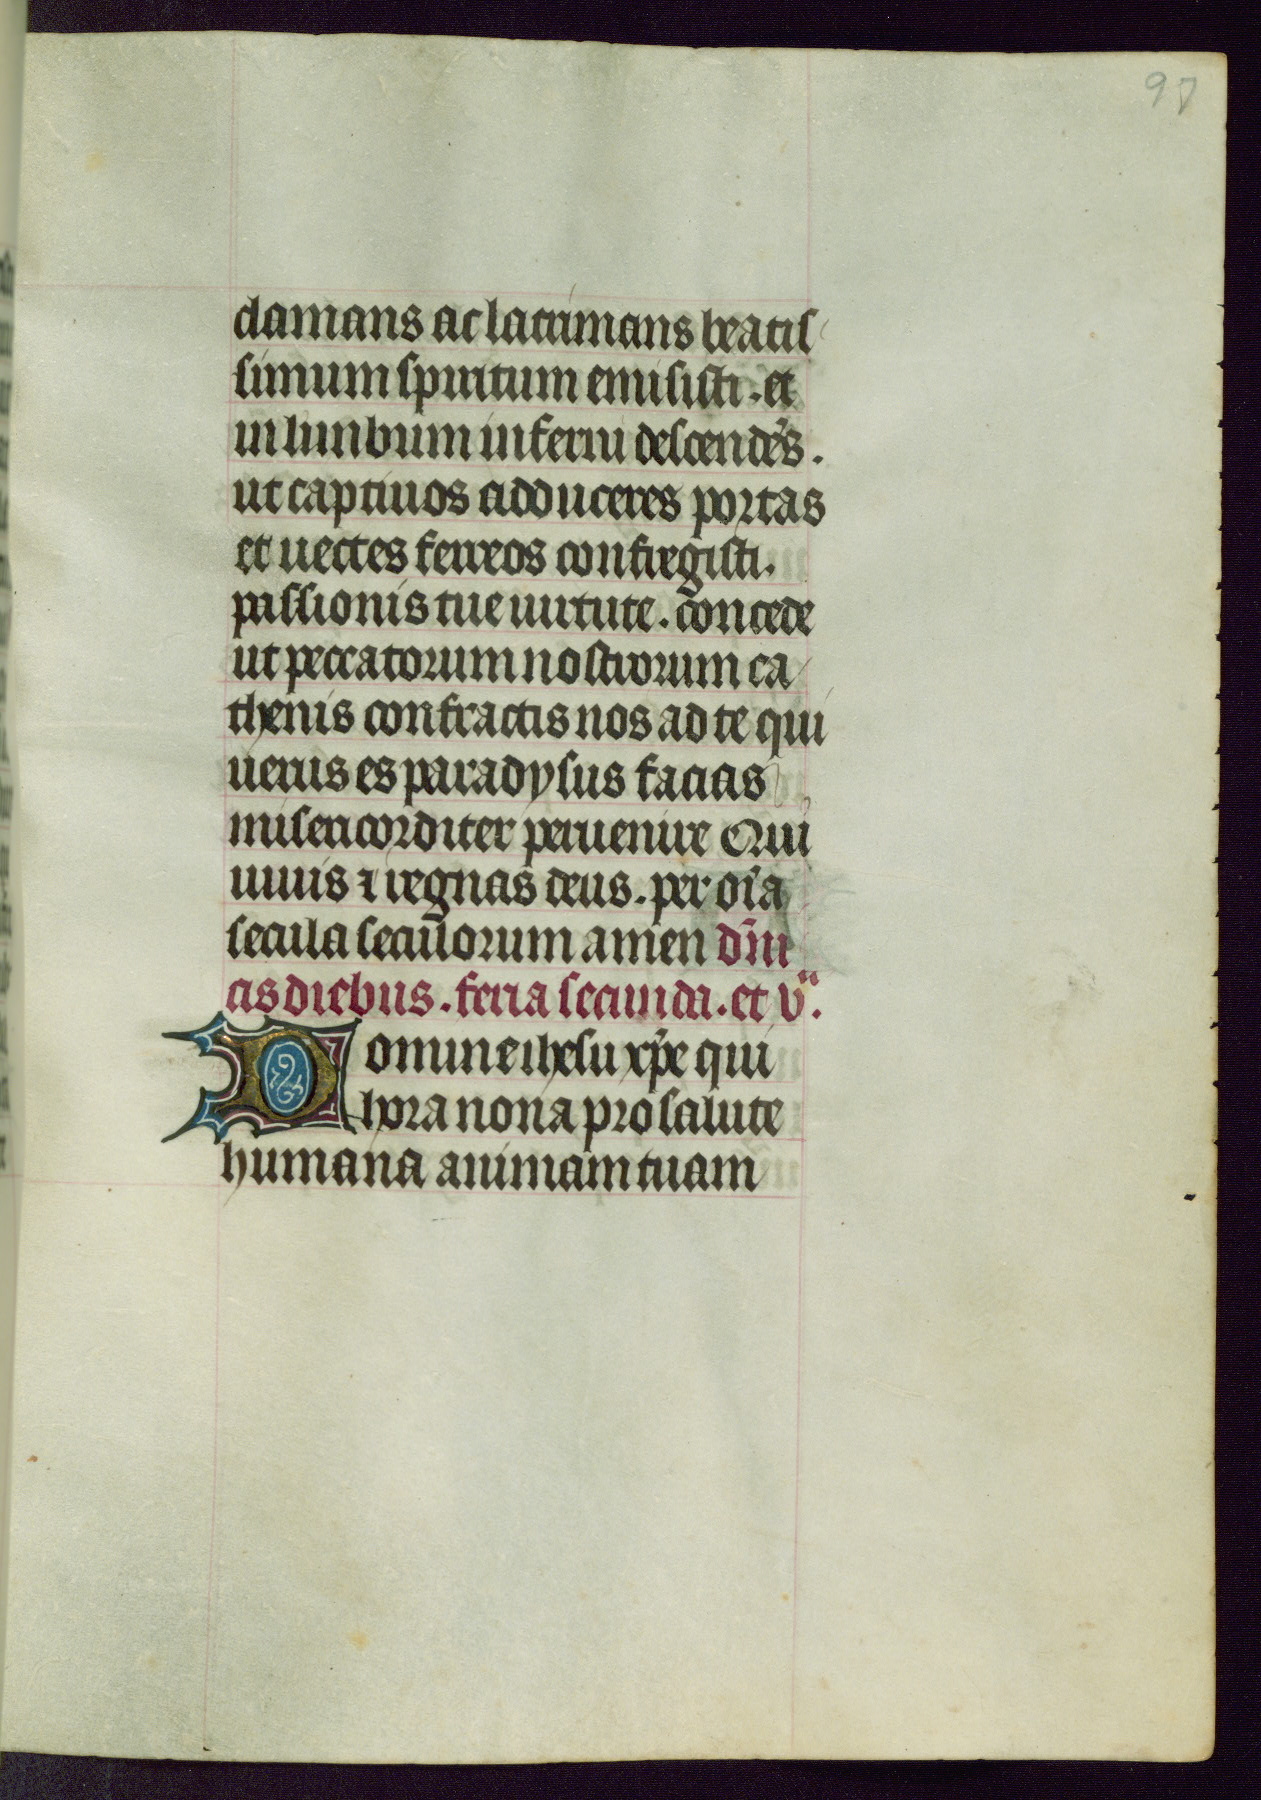 97
clamans ac lacrimans beatis
simum spiritum emisisti . et
in limbum inferni descendēs .
ut captiuos adduceres portas
et uectes ferreos confregisti .
passionis tue uirtute . concede
ut peccatorum nostrorum ca
thenis confractis nos ad te qui
uerus es paradysus facias
misericorditer peruenire Qui
uiuis ⁊ regnas deus . per oīa
secula seculorum amen dn̄i
cis diebus . feria secunda . et vᵃ .
Domine ihesu xp̄e qui
hora nona pro salute
humana animam tuam